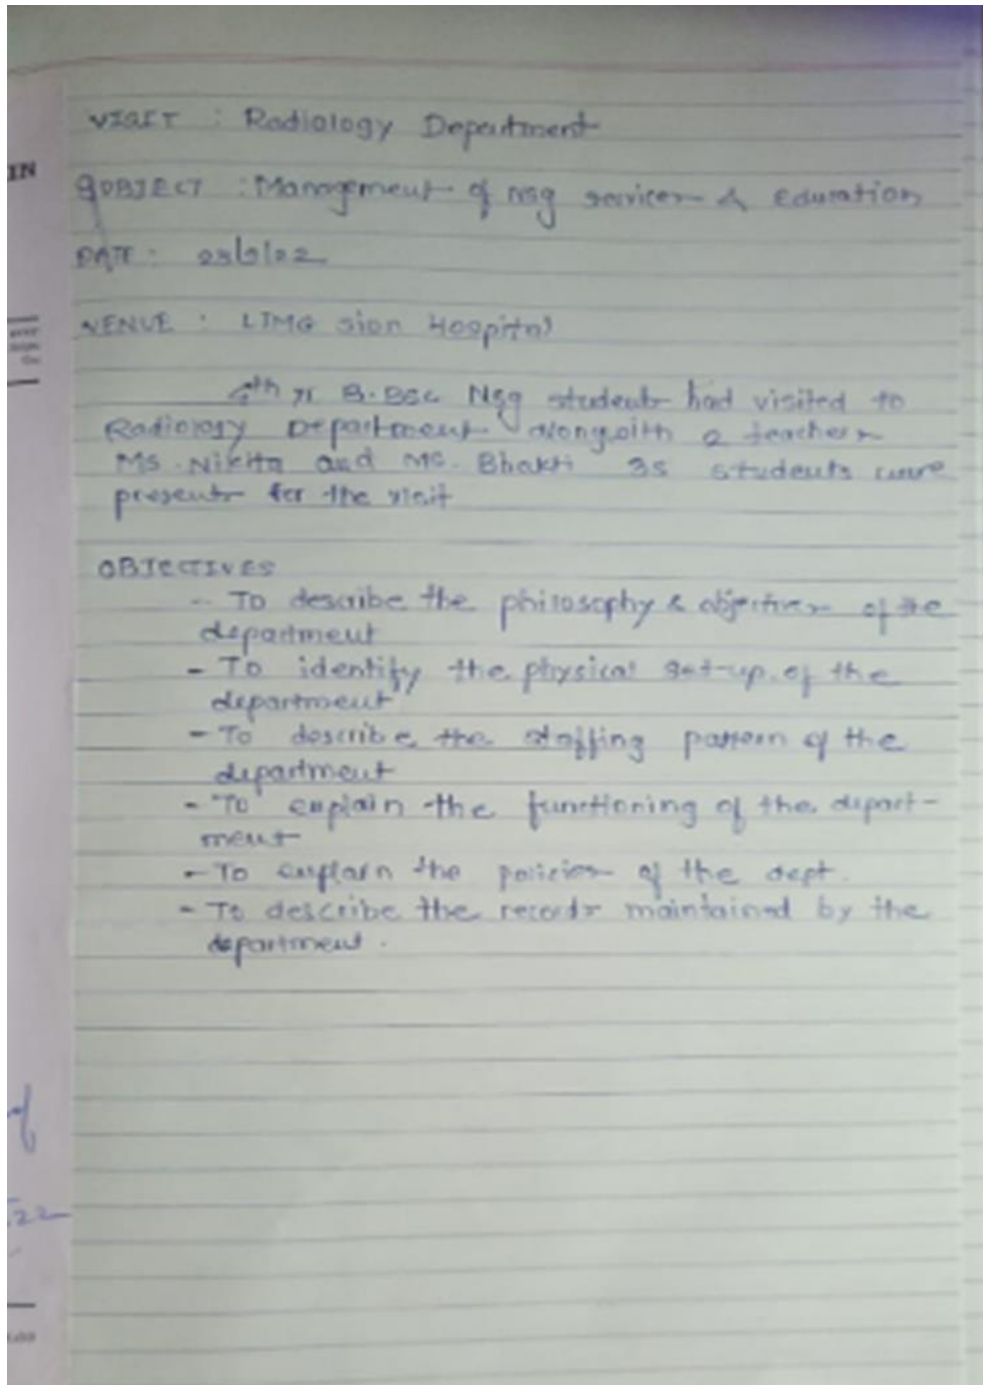 VISIT : Radiology Department
IN
SUBJECT : Management of nsg services & Education
DATE :
VENUE : LTMG sion Hospital
4th yr B.BSC Nsg students had visited to
Radiology Department alongwith 2 teachers
Ms. Nikita and Ms. Bhakti 35 students were
presents for the visit
OBJECTIVES
- To describe the philosophy & objectives of the
department
- To identify the physical set-up of the
department
- To describe the staffing pattern of the
department
- To explain the functioning of the depart-
ment
- To explain the policies of the dept.
- To describe the records maintained by the
department.
22